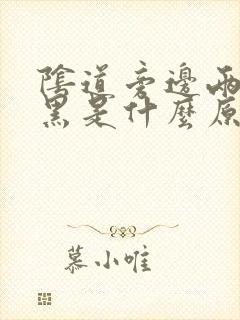 陰道旁邊兩
黑是什麼原
慕小唯